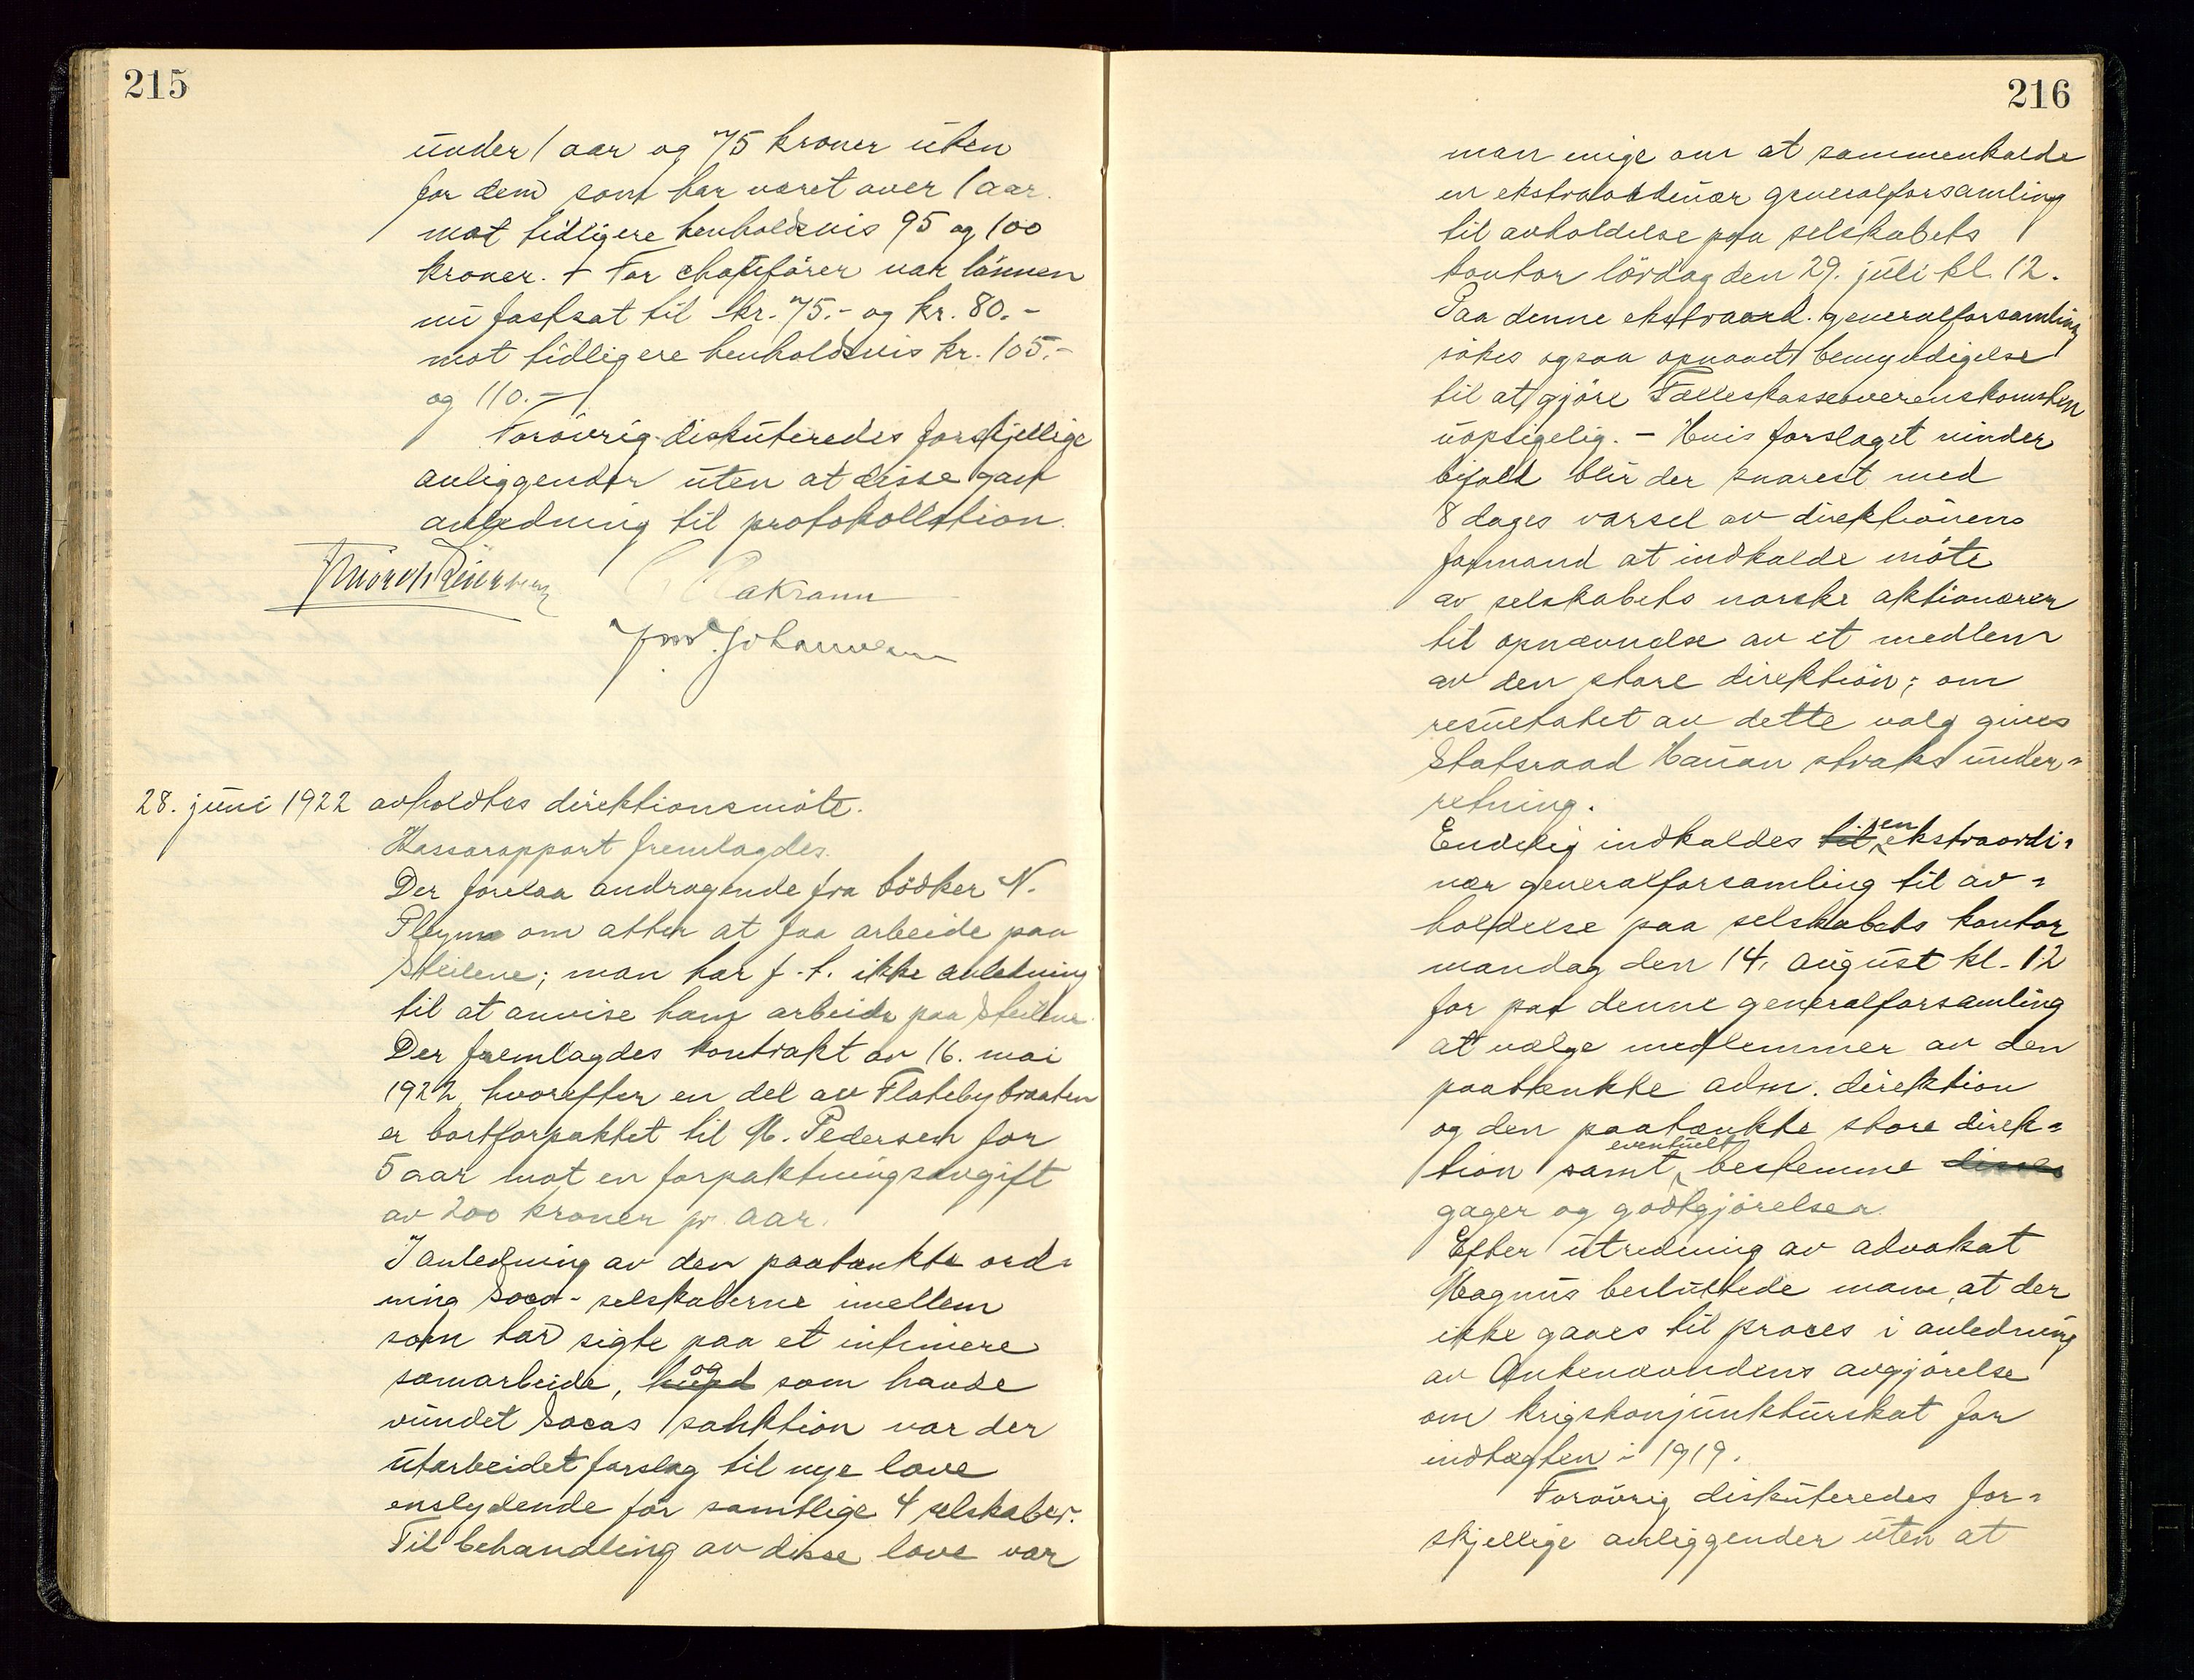 215
under 1 aar og 75 kroner uken
for dem som har været over 1 aar
mot tidligere henholdsvis 95 og 100
kroner. + For chauffører var lönnen
nu fastsat til kr. 75.- og kr. 80.-
mot tidligere henholdsvis kr. 105.-
og 110.-
Forövrig diskuteredes forskjellige
anliggender uten at disse gav
anledning til protokollation.
Johannesen
28. juni 1922 avholdtes direktionsmöte.
Kassarapport fremlagdes.
Der forelaa andragende fra bödker N.
om atter at faa arbeide paa
Steilene; man har f. t. ikke anledning
til at anvise ham arbeide paa Steilene.
Der fremlagdes kontrakt av 16. mai
1922, hvorefter en del av Flatebybraaten
er bortforpaktet til M. Pedersen for
5 aar mot en forpaktningsavgift
av 200 kroner pr. aar.
I anledning av den paatænkte ord-
ning Soco-selskaberne imellem
som tar sigte paa et intimere
samarbeide, og som havde
vundet Socos sanktion var der
utarbeidet forslag til nye love
enslydende for samtlige 4 selskaber.
Til behandling av disse love var
216
man enige om at sammenkalde
en ekstraordinær generalforsamling
til avholdelse paa selskabets
kontor lördag den 29. juli kl. 12.
Paa denne ekstraord. generalforsamling
sökes ogsaa opnaaet bemyndigelse
til at gjöre Fælleskasseoverenskomsten
uopsigelig. - Hvis forslaget vinder
bifald blir der snarest med
8 dages varsel av direktionens
formand at indkalde möte
av selskabets norske aktionærer
til opnævnelse av et medlem
av den store direktion; om
resultatet av dette valg gives
Statsraad Hauan straks under-
retning.
Endelig indkaldes til en ekstraordi-
nær generalforsamling til av-
holdelse paa selskabets kontor
mandag den 14. august kl. 12
for paa denne generalforsamling
at vælge medlemmer av den
paatænkte adm. direktion
og den paatænkte store direk-
tion samt eventuelt bestemme disses
gager og godtgjörelser.
Efter utredning av advokat
Magnus besluttede man, at der
ikke gaaes til proces i anledning
av Ankenævndens avgjörelse
om krigskonjunkturskat for
indtægten i 1919.
Forövrig diskuteredes for-
skjellige anliggender uten at